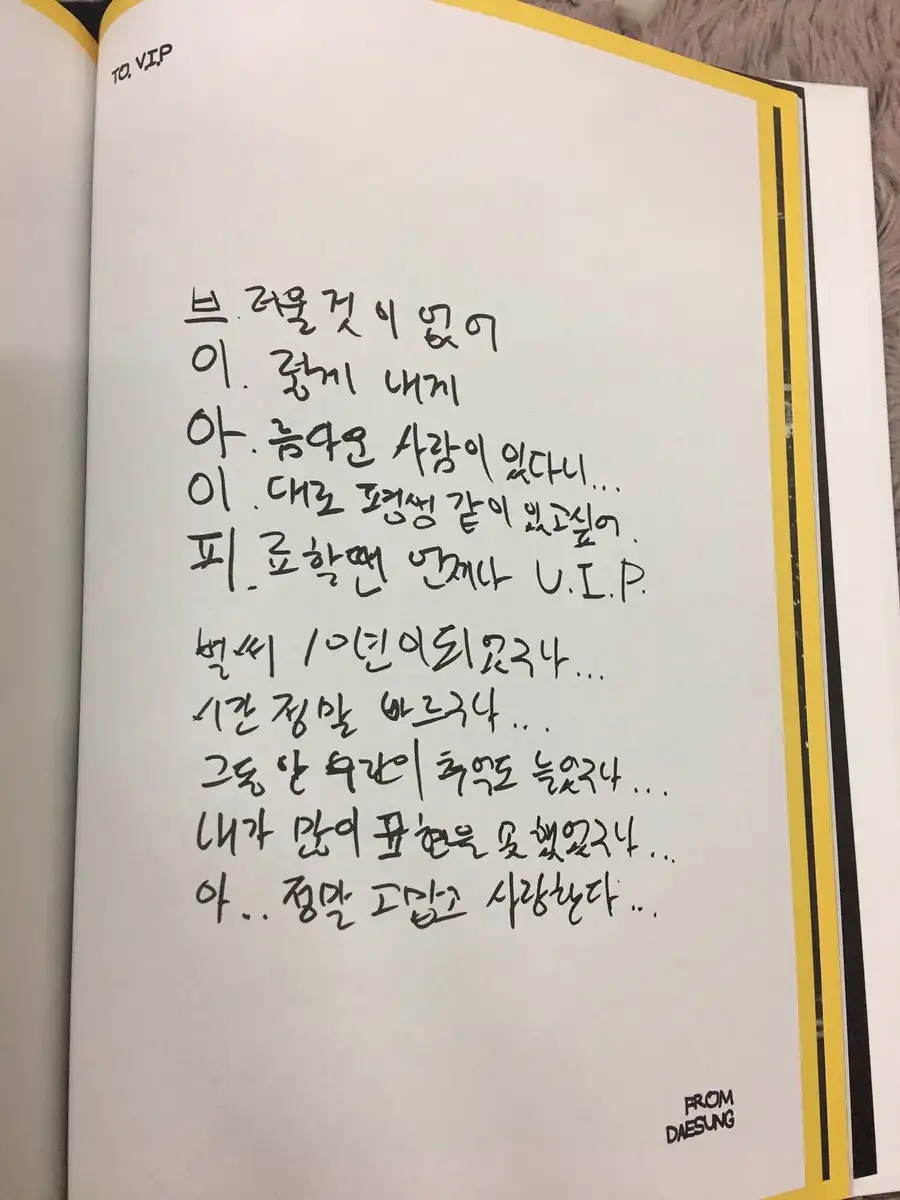 TO. V.I.P
브. 러울것이 없어
이. 렇게 내게
아. 름다운 사람이 있다니...
이. 대로 평생 같이 있고싶어.
피. 료할땐 언제나 V.I.P.
벌써 10년이되었구나...
시간 정말 빠르구나...
그동안 수많이 추억도 늘었구나...
내가 많이 표현을 못했었구나...
아.. 정말 고맙고 사랑한다...
FROM
DAESUNG